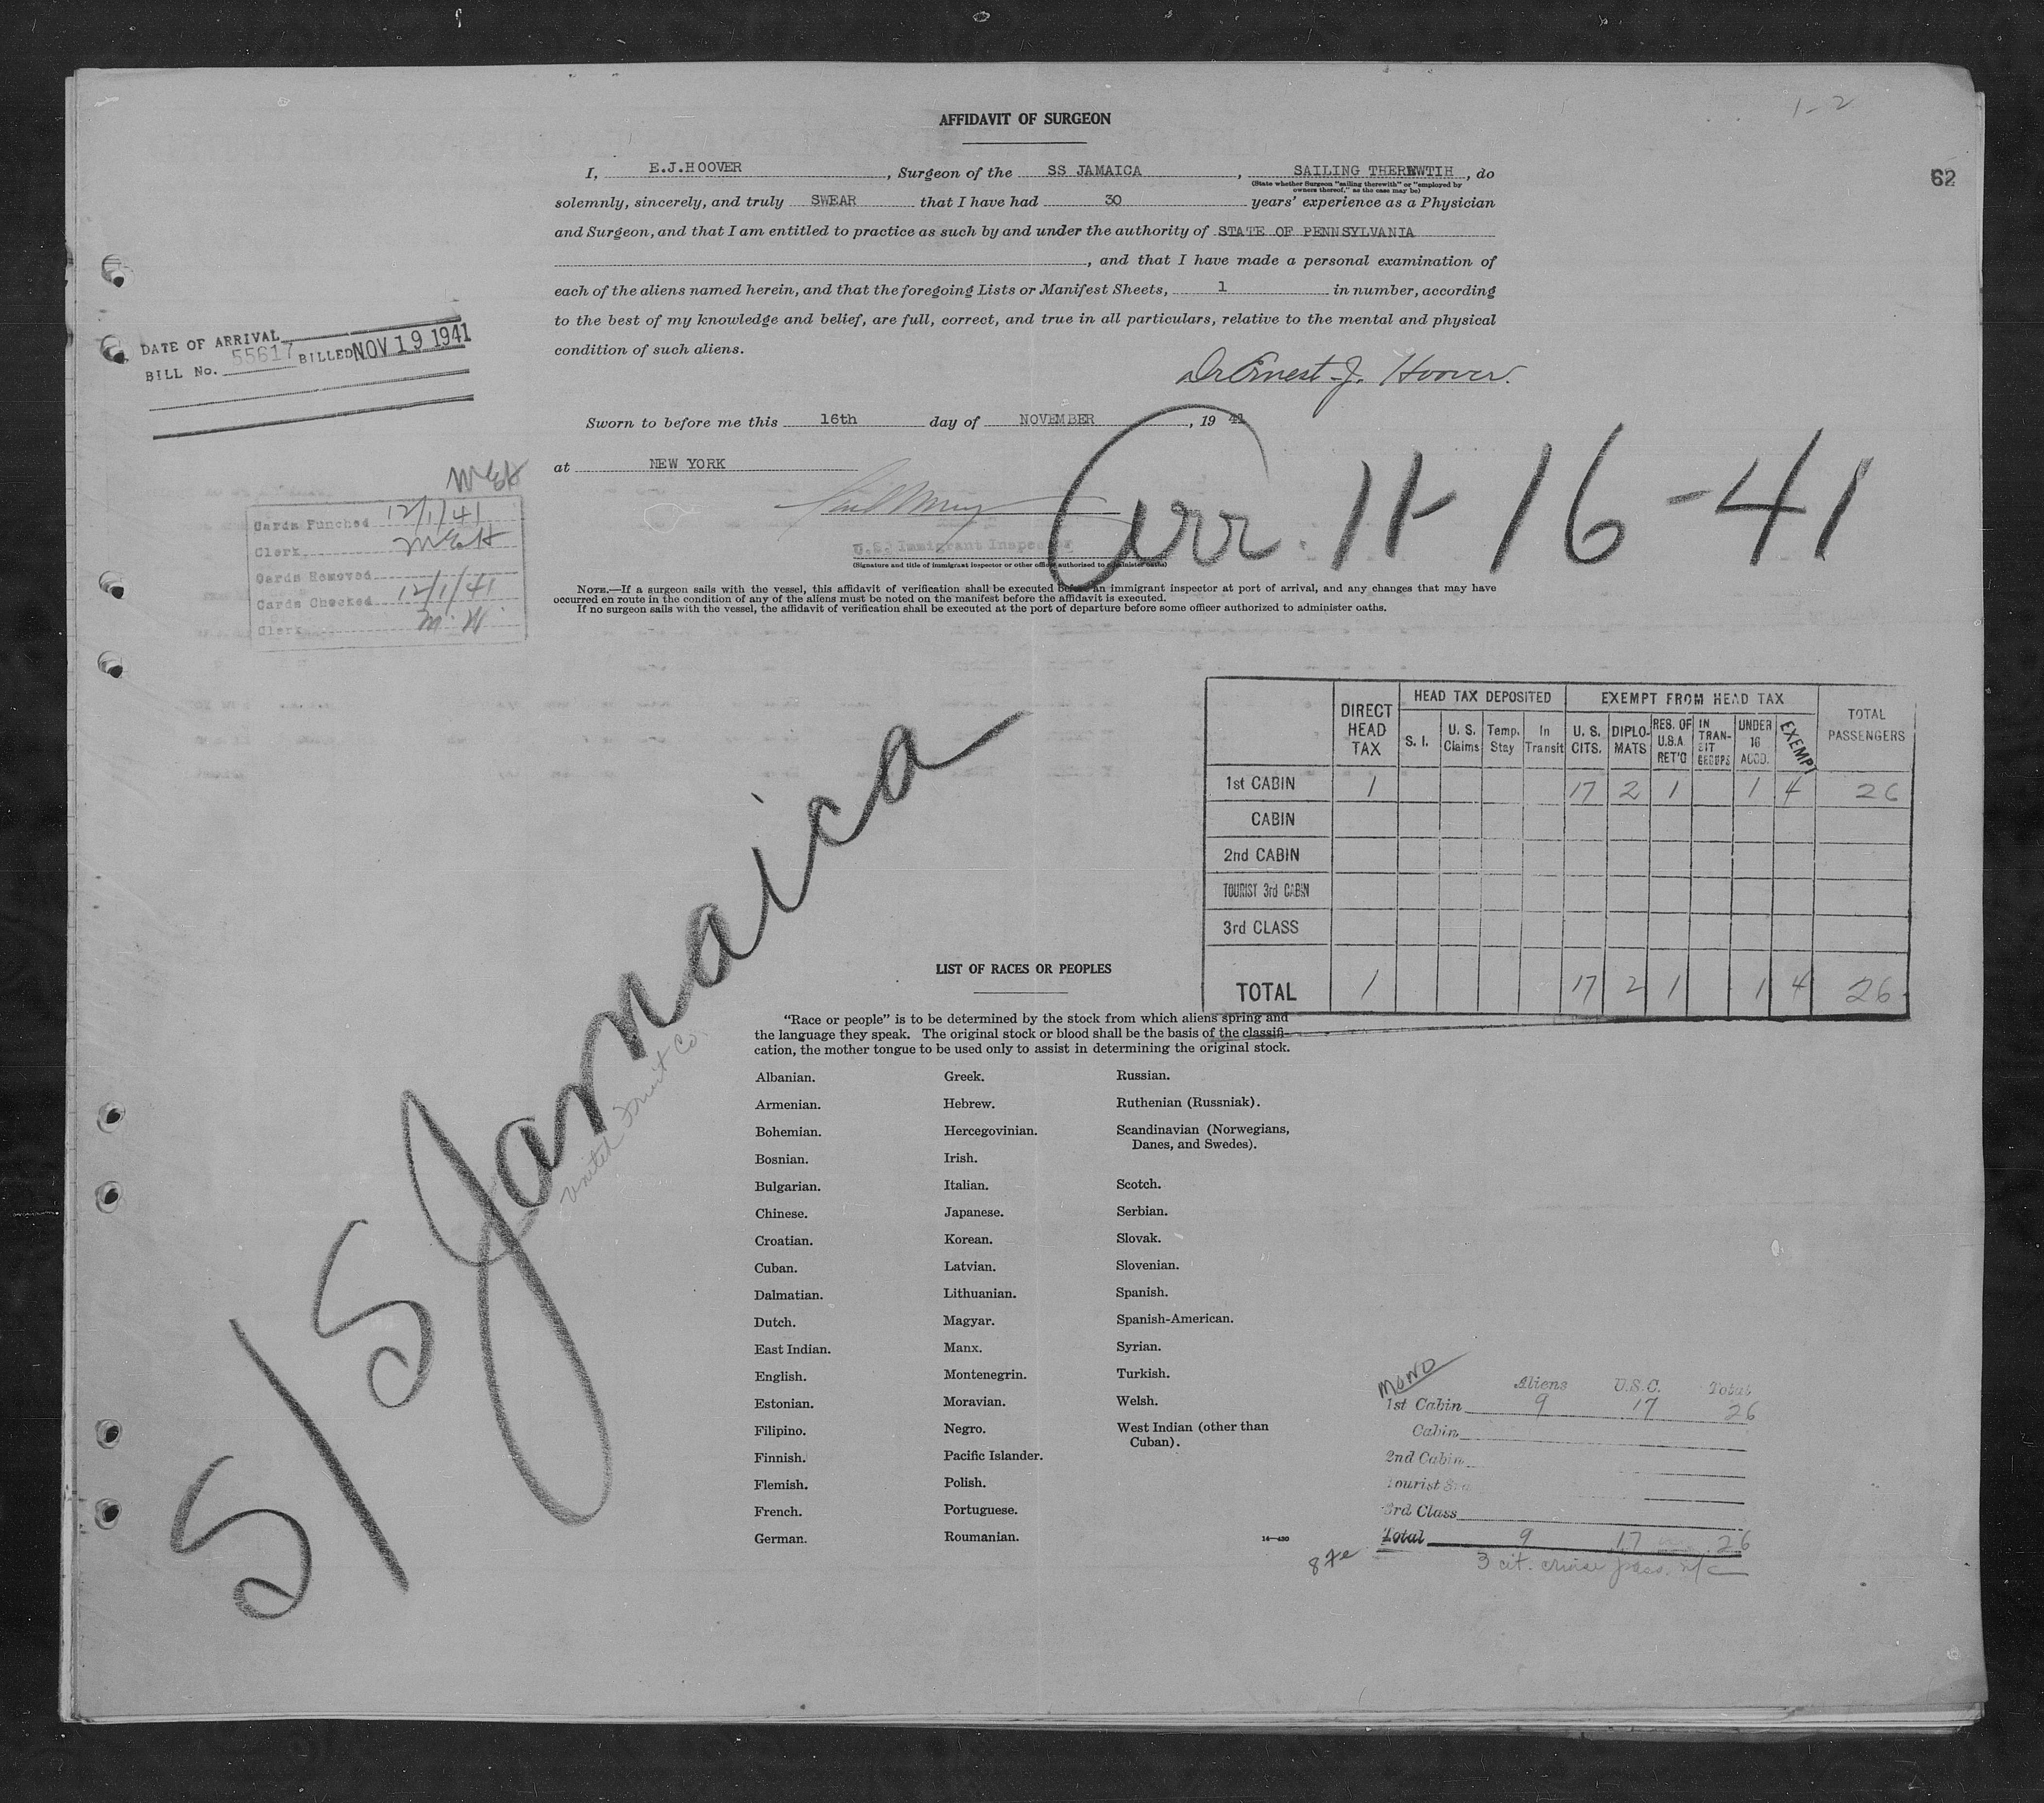 1-2
AFFIDAVIT OF SURGEON
62
I, E.J.HOOVER, Surgeon of the SS JAMAICA, SAILING THEREWTIH, do
(State whether Surgeon "sailing therewith" or "employed by
owners thereof," as the case may be)
solemnly, sincerely, and truly SWEAR that I have had 30 years' experience as a Physician
and Surgeon, and that I am entitled to practice as such by and under the authority of STATE OF PENNSYLVANIA
, and that I have made a personal examination of
each of the aliens named herein, and that the foregoing Lists or Manifest Sheets, 1 in number, according
to the best of my knowledge and belief, are full, correct, and true in all particulars, relative to the mental and physical
condition of such aliens.
DATE OF ARRIVAL
BILL No. 55617 BILLED NOV 19 1941
Dr Ernest J. Hoover.
Sworn to before me this 16th day of NOVEMBER, 19 41
at NEW YORK
Arr. 11-16-41
U.S. Immigrant Inspector
(Signature and title of immigrant inspector or other officer authorized to administer oaths)
MEH
Cards Punched 12/1/41
Clerk MEH
Cards Removed
Cards Checked 12/1/41
Clerk M.W.
NOTE.—If a surgeon sails with the vessel, this affidavit of verification shall be executed before an immigrant inspector at port of arrival, and any changes that may have
occurred en route in the condition of any of the aliens must be noted on the manifest before the affidavit is executed.
If no surgeon sails with the vessel, the affidavit of verification shall be executed at the port of departure before some officer authorized to administer oaths.
DIRECT HEAD TAX HEAD TAX DEPOSITED EXEMPT FROM HEAD TAX TOTAL PASSENGERS
S. I. U. S. Claims Temp. Stay In Transit U. S. CITS. DIPLO-MATS RES. OF U.S.A. RET'G IN TRAN-SIT GROUPS UNDER 16 ACCD. EXEMPT
1st CABIN 1 17 2 1 1 4 26
CABIN
2nd CABIN
TOURIST 3rd CABIN
3rd CLASS
TOTAL 1 17 2 1 1 4 26
S/S Jamaica
United Fruit Co.
LIST OF RACES OR PEOPLES
"Race or people" is to be determined by the stock from which aliens spring and
the language they speak. The original stock or blood shall be the basis of the classifi-
cation, the mother tongue to be used only to assist in determining the original stock.
Albanian.
Armenian.
Bohemian.
Bosnian.
Bulgarian.
Chinese.
Croatian.
Cuban.
Dalmatian.
Dutch.
East Indian.
English.
Estonian.
Filipino.
Finnish.
Flemish.
French.
German.
Greek.
Hebrew.
Hercegovinian.
Irish.
Italian.
Japanese.
Korean.
Latvian.
Lithuanian.
Magyar.
Manx.
Montenegrin.
Moravian.
Negro.
Pacific Islander.
Polish.
Portuguese.
Roumanian.
Russian.
Ruthenian (Russniak).
Scandinavian (Norwegians,
Danes, and Swedes).
Scotch.
Serbian.
Slovak.
Slovenian.
Spanish.
Spanish-American.
Syrian.
Turkish.
Welsh.
West Indian (other than
Cuban).
14—430
MOND
Aliens U.S.C. Total
1st Cabin 9 17 26
Cabin
2nd Cabin
Tourist 3rd
3rd Class
Total 9 17 26
3 cit. cruise pass. n/c